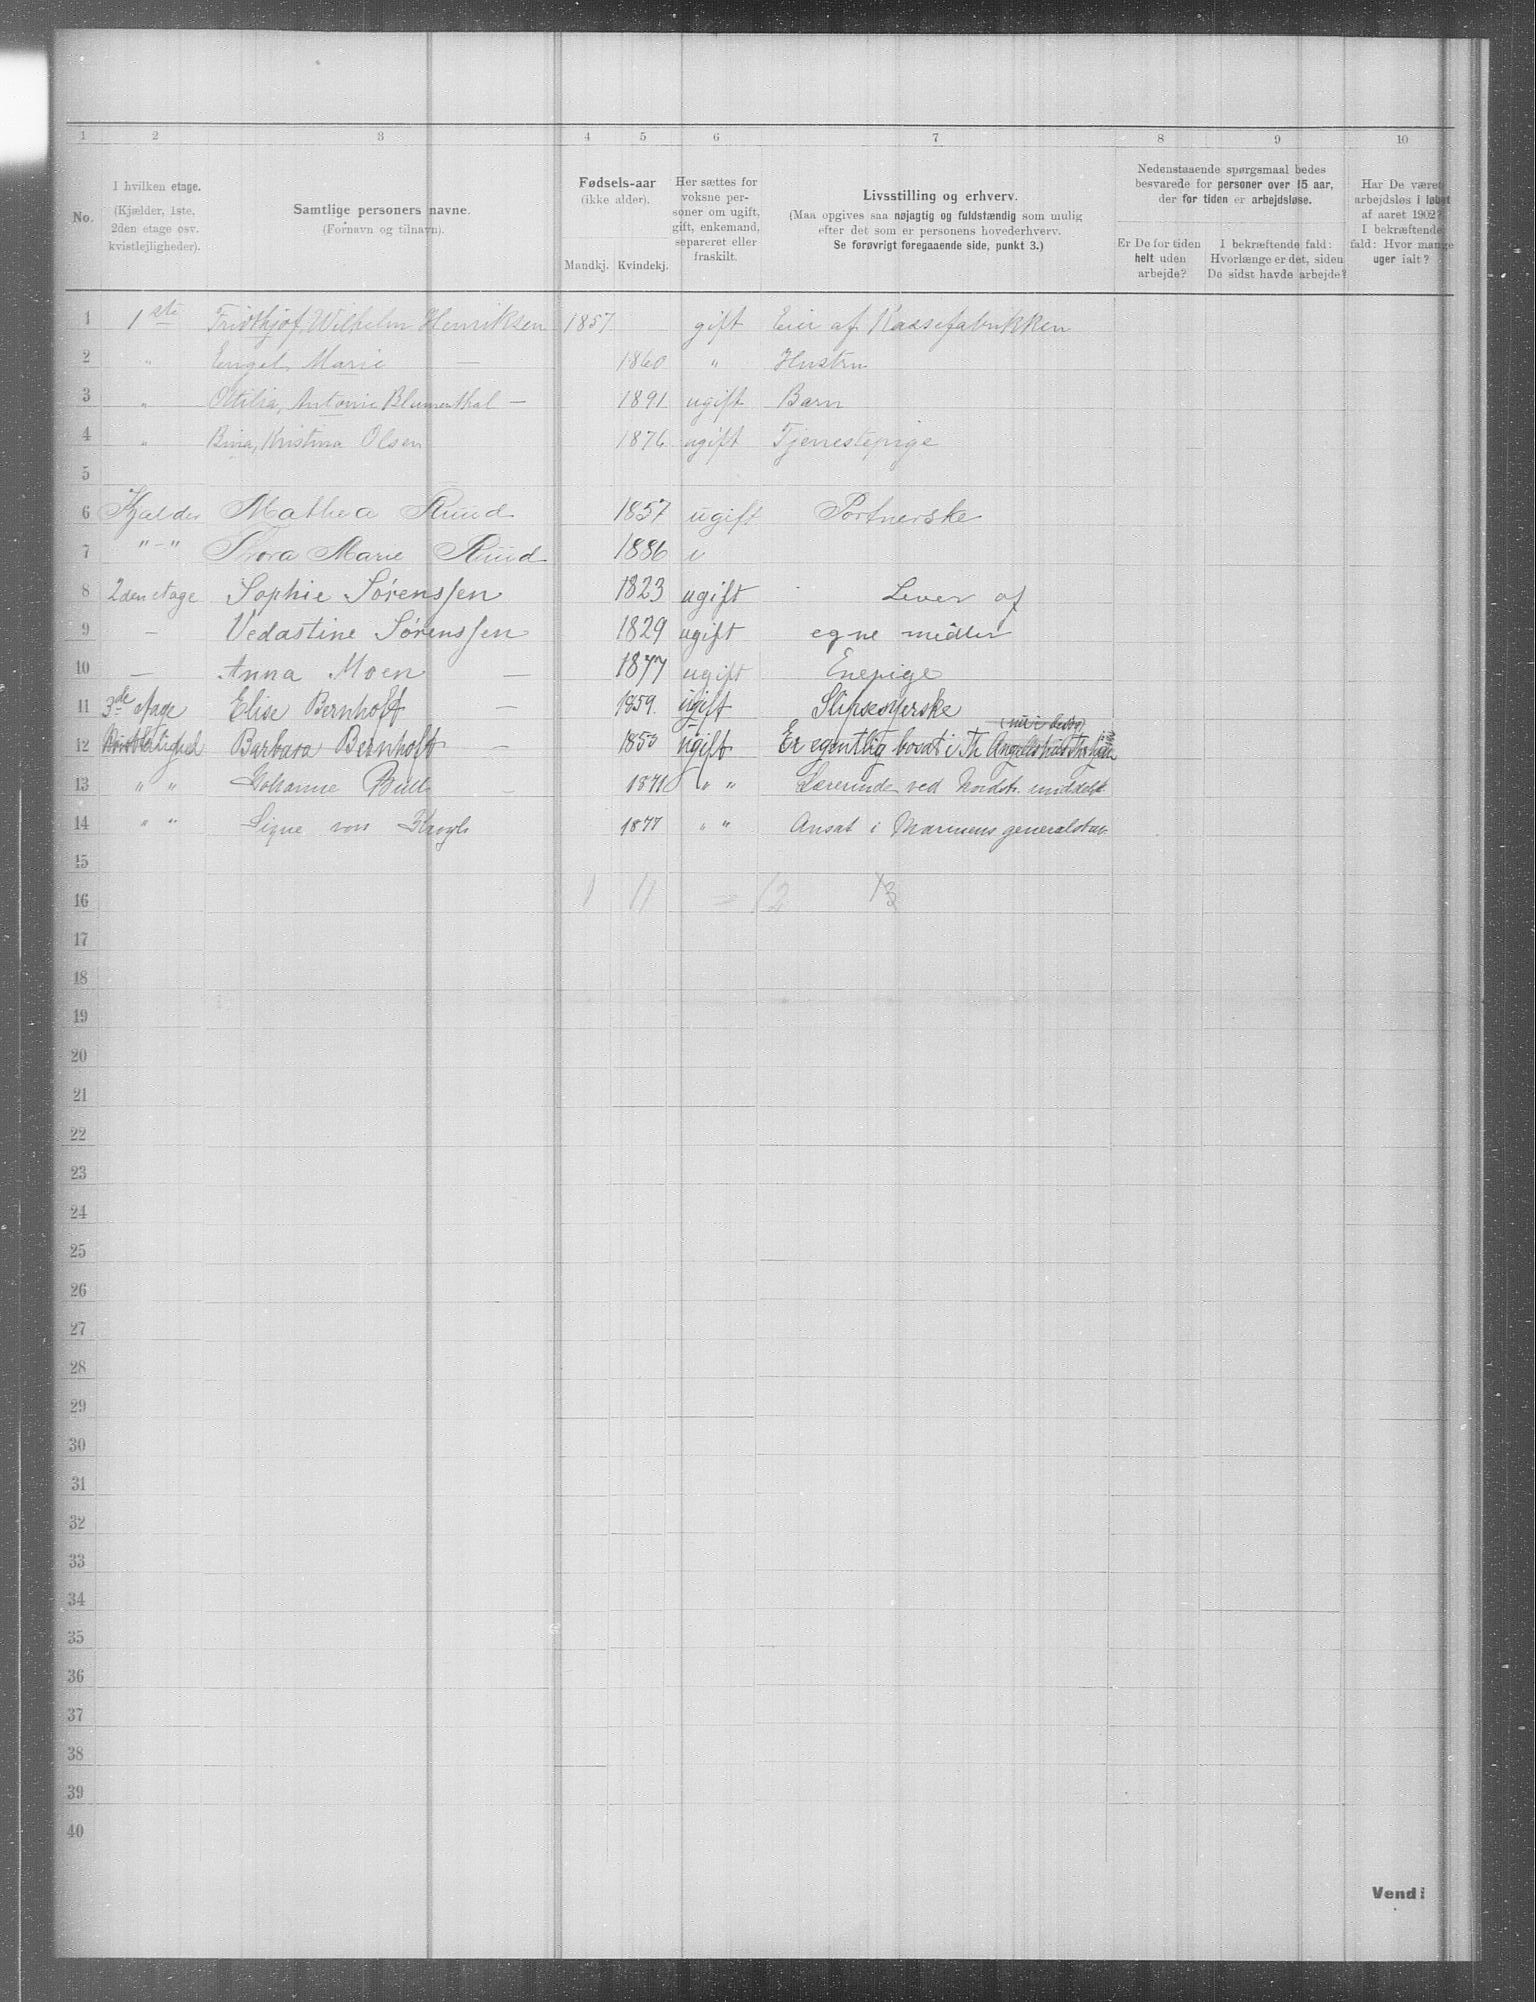 1 2 3 4 5 6 7 8 9 10
No.
I hvilken etage.
(Kjælder, 1ste,
2den etage osv.
kvistlejligheder).
Samtlige personers navne.
(Fornavn og tilnavn).
Fødsels-aar
(ikke alder).
Mandkj. Kvindekj.
Her sættes for
voksne per-
soner om ugift,
gift, enkemand,
separeret eller
fraskilt.
Livsstilling og erhverv.
(Maa opgives saa nøjagtig og fuldstændig som mulig
efter det som er personens hovederhverv.
Se forøvrigt foregaaende side, punkt 3.)
Nedenstaaende spørgsmaal bedes
besvarede for personer over 15 aar,
der for tiden er arbejdsløse.
Er De for tiden
helt uden
arbejde?
I bekræftende fald:
Hvorlænge er det, siden
De sidst havde arbejde?
Har De været
arbejdsløs i løbet
af aaret 1902?
I bekræftende
fald: Hvor mange
uger ialt?
1 1ste Fridthjof Wilhelm Henriksen 1857 gift Eier af Kassefabrikken
2 " Engel Marie — 1860 " Hustru
3 " Ottilia, Antonie Blumenthal — 1891 ugift Barn
4 " Bina, Kristina Olsen 1876 ugift Tjenestepige
5
6 Kjælder Mathea Ruud 1857 ugift Portnerske
7 " - " Thora Marie Ruud 1886 u
8 2den etage Sophie Sørenssen 1823 ugift Lever af
9 — Vedastine Sørenssen 1829 ugift egne midler
10 — Anna Moen — 1877 ugift Enepige
11 3de etage Elise Bernhoft — 1859. ugift Slipsesyerske
12 Barbara Bernhoft — 1853 ugift Er egentlig bosat i Th
13 " " Johanne Bull — 1871 " " Lærerinde ved Nordstr.
14 " " Signe von Krogh 1877 " " Ansat i Marinens generalstab
15
16 1 11 = 12 13
17
18
19
20
21
22
23
24
25
26
27
28
29
30
31
32
33
34
35
36
37
38
39
40
Vend!